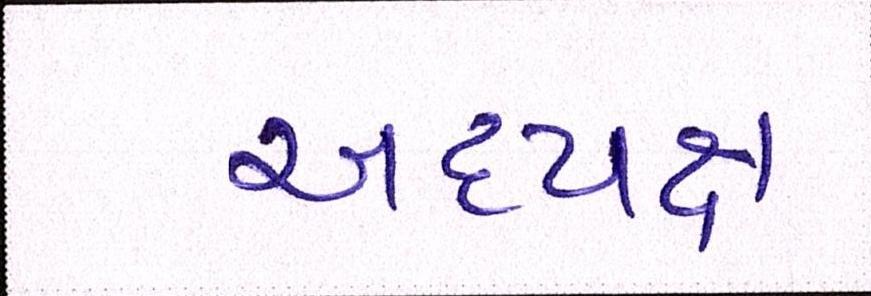 અધ્યક્ષ